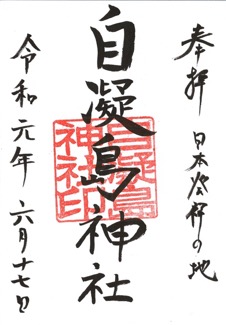 奉拝 日本発祥の地
自凝島神社
自凝島神社印
令和元年 六月十七日